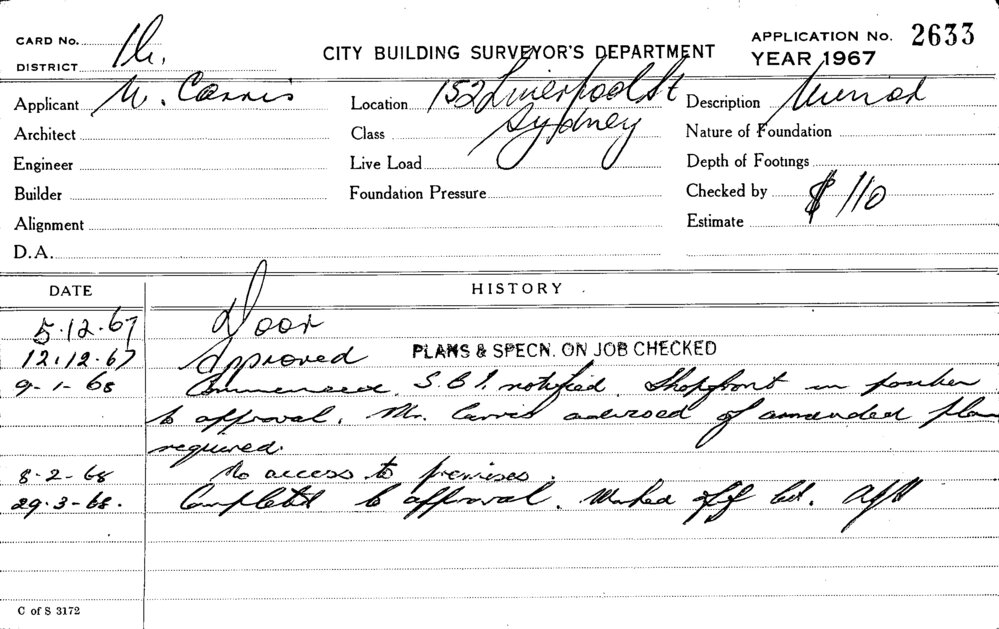 CARD No.
DISTRICT
CITY BUILDING SURVEYOR'S DEPARTMENT
APPLICATION No. 2633
YEAR 1967
Applicant
Location 152 Liverpool St
Sydney
Description
Architect
Class
Nature of Foundation
Engineer
Live Load
Depth of Footings
Builder
Foundation Pressure
Checked by
Alignment
Estimate $110
D.A.
DATE HISTORY
5.12.67 Door
12.12.67 Approved PLANS & SPECN. ON JOB CHECKED
9-1-68 Commenced. S.B.I. notified. Shopfront in
to approval. Mr. advised of amended plan
required.
8-2-68 No access to premises.
29.3-68. Completed to approval. off
C of S 3172